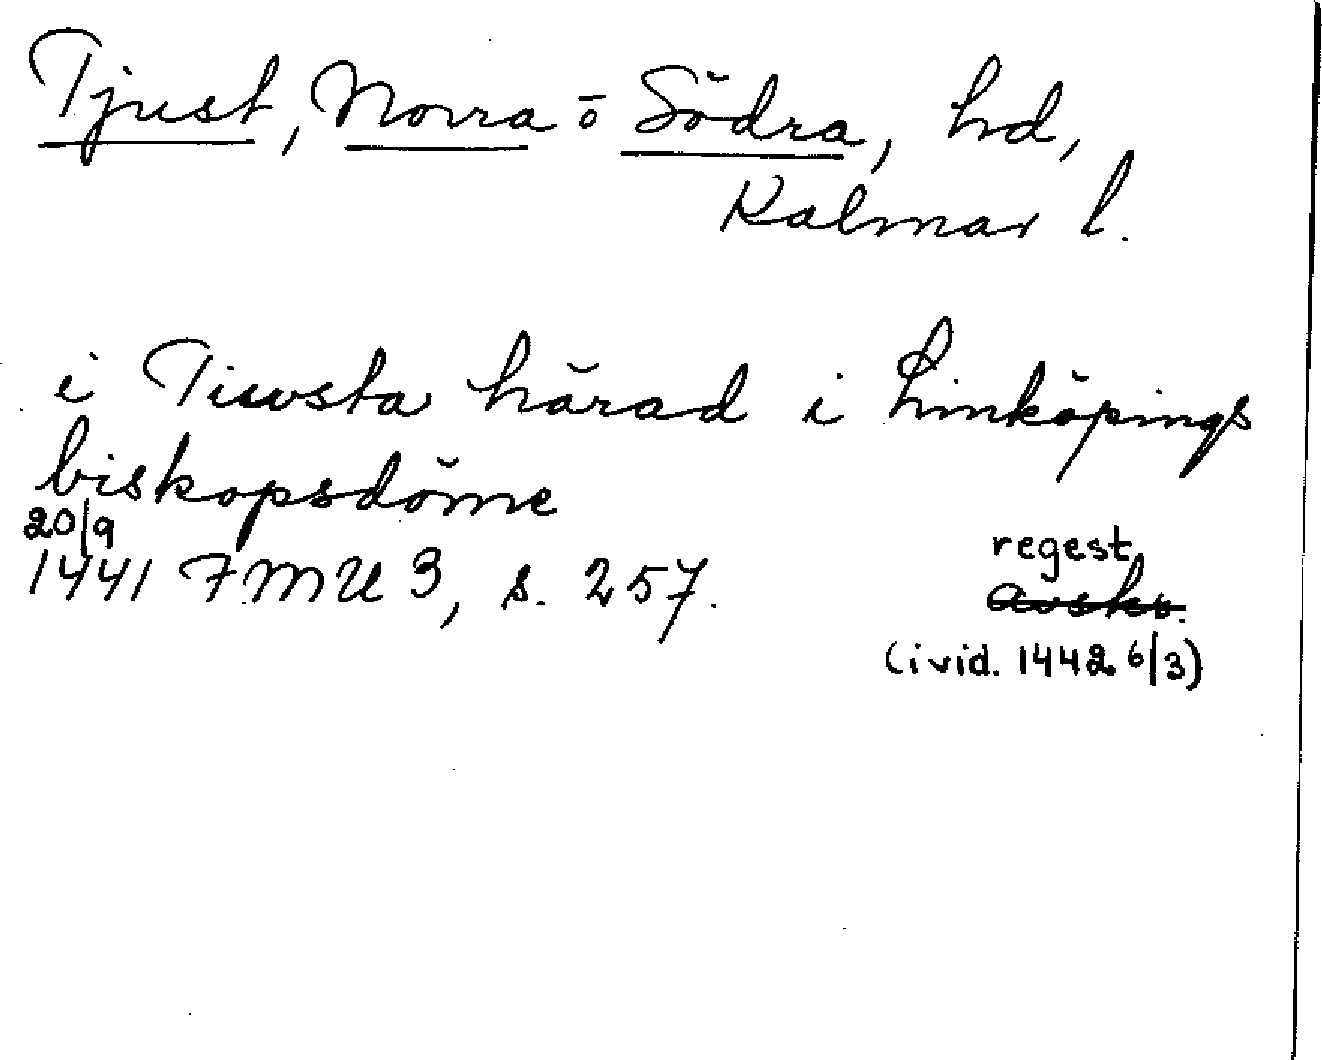 Tjust, Norra o Södra, hd,
Kalmar l.
i Tiwsta härad i Linköpings
biskopsdöme
20/9
1441 FMU 3, s. 257.
regest
avskr.
(i vid. 1442 6/3)